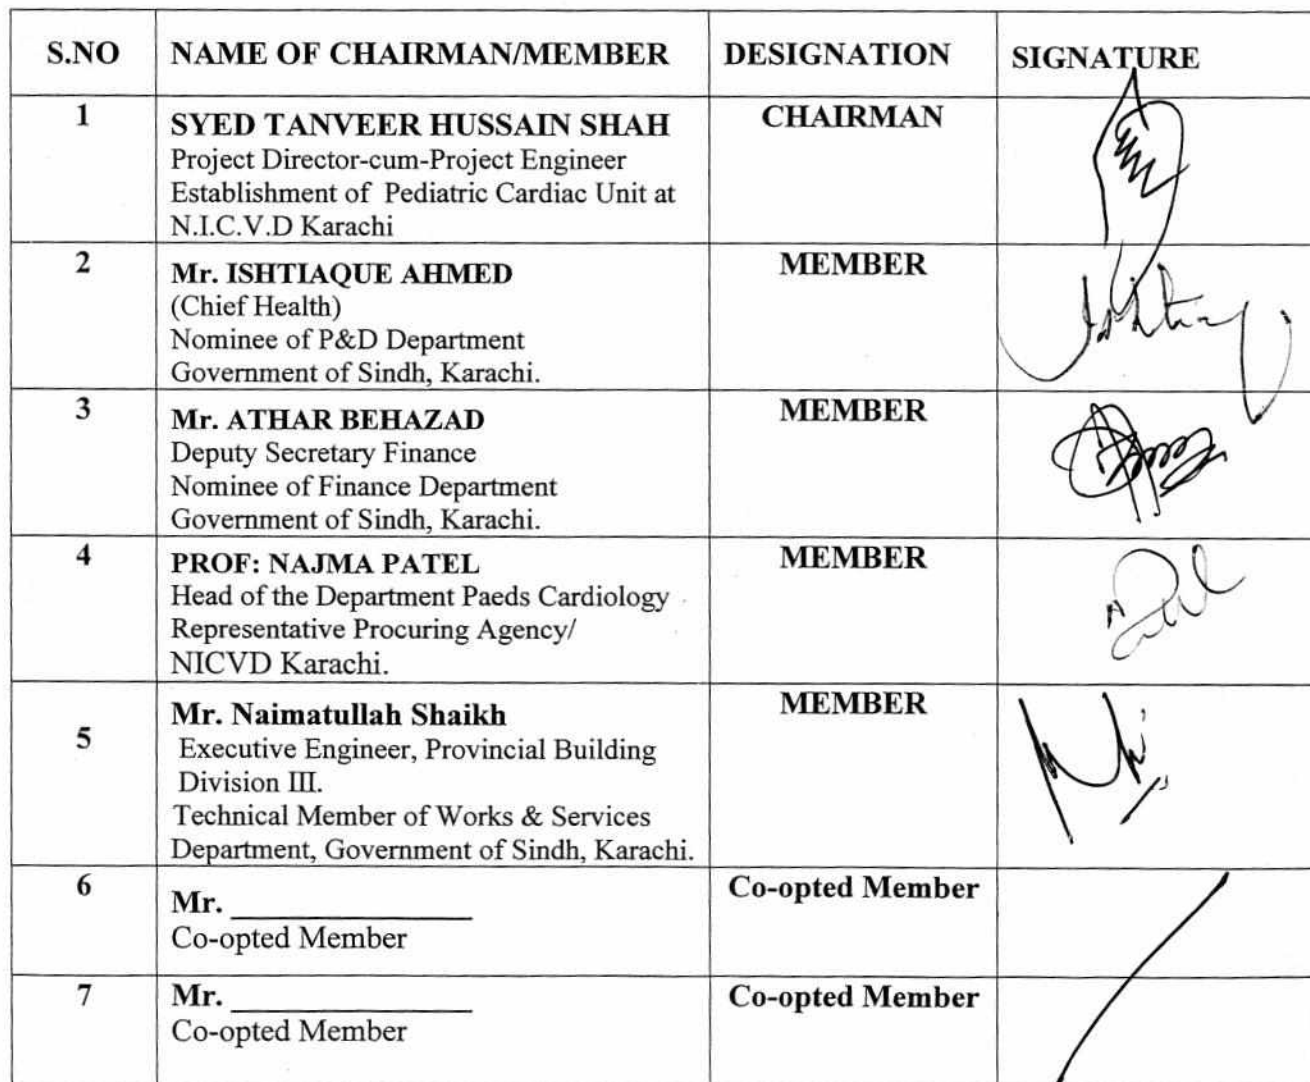 S.NO NAME OF CHAIRMAN/MEMBER DESIGNATION SIGNATURE
1 SYED TANVEER HUSSAIN SHAH CHAIRMAN
Project Director-cum-Project Engineer
Establishment of Pediatric Cardiac Unit at
N.I.C.V.D Karachi
2 Mr. ISHTIAQUE AHMED MEMBER
(Chief Health)
Nominee of P&D Department
Government of Sindh, Karachi.
3 Mr. ATHAR BEHAZAD MEMBER
Deputy Secretary Finance
Nominee of Finance Department
Government of Sindh, Karachi.
4 PROF: NAJMA PATEL MEMBER
Head of the Department Paeds Cardiology
Representative Procuring Agency/
NICVD Karachi.
5 Mr. Naimatullah Shaikh MEMBER
Executive Engineer, Provincial Building
Division III.
Technical Member of Works & Services
Department, Government of Sindh, Karachi.
6 Mr. Co-opted Member
Co-opted Member
7 Mr. Co-opted Member
Co-opted Member